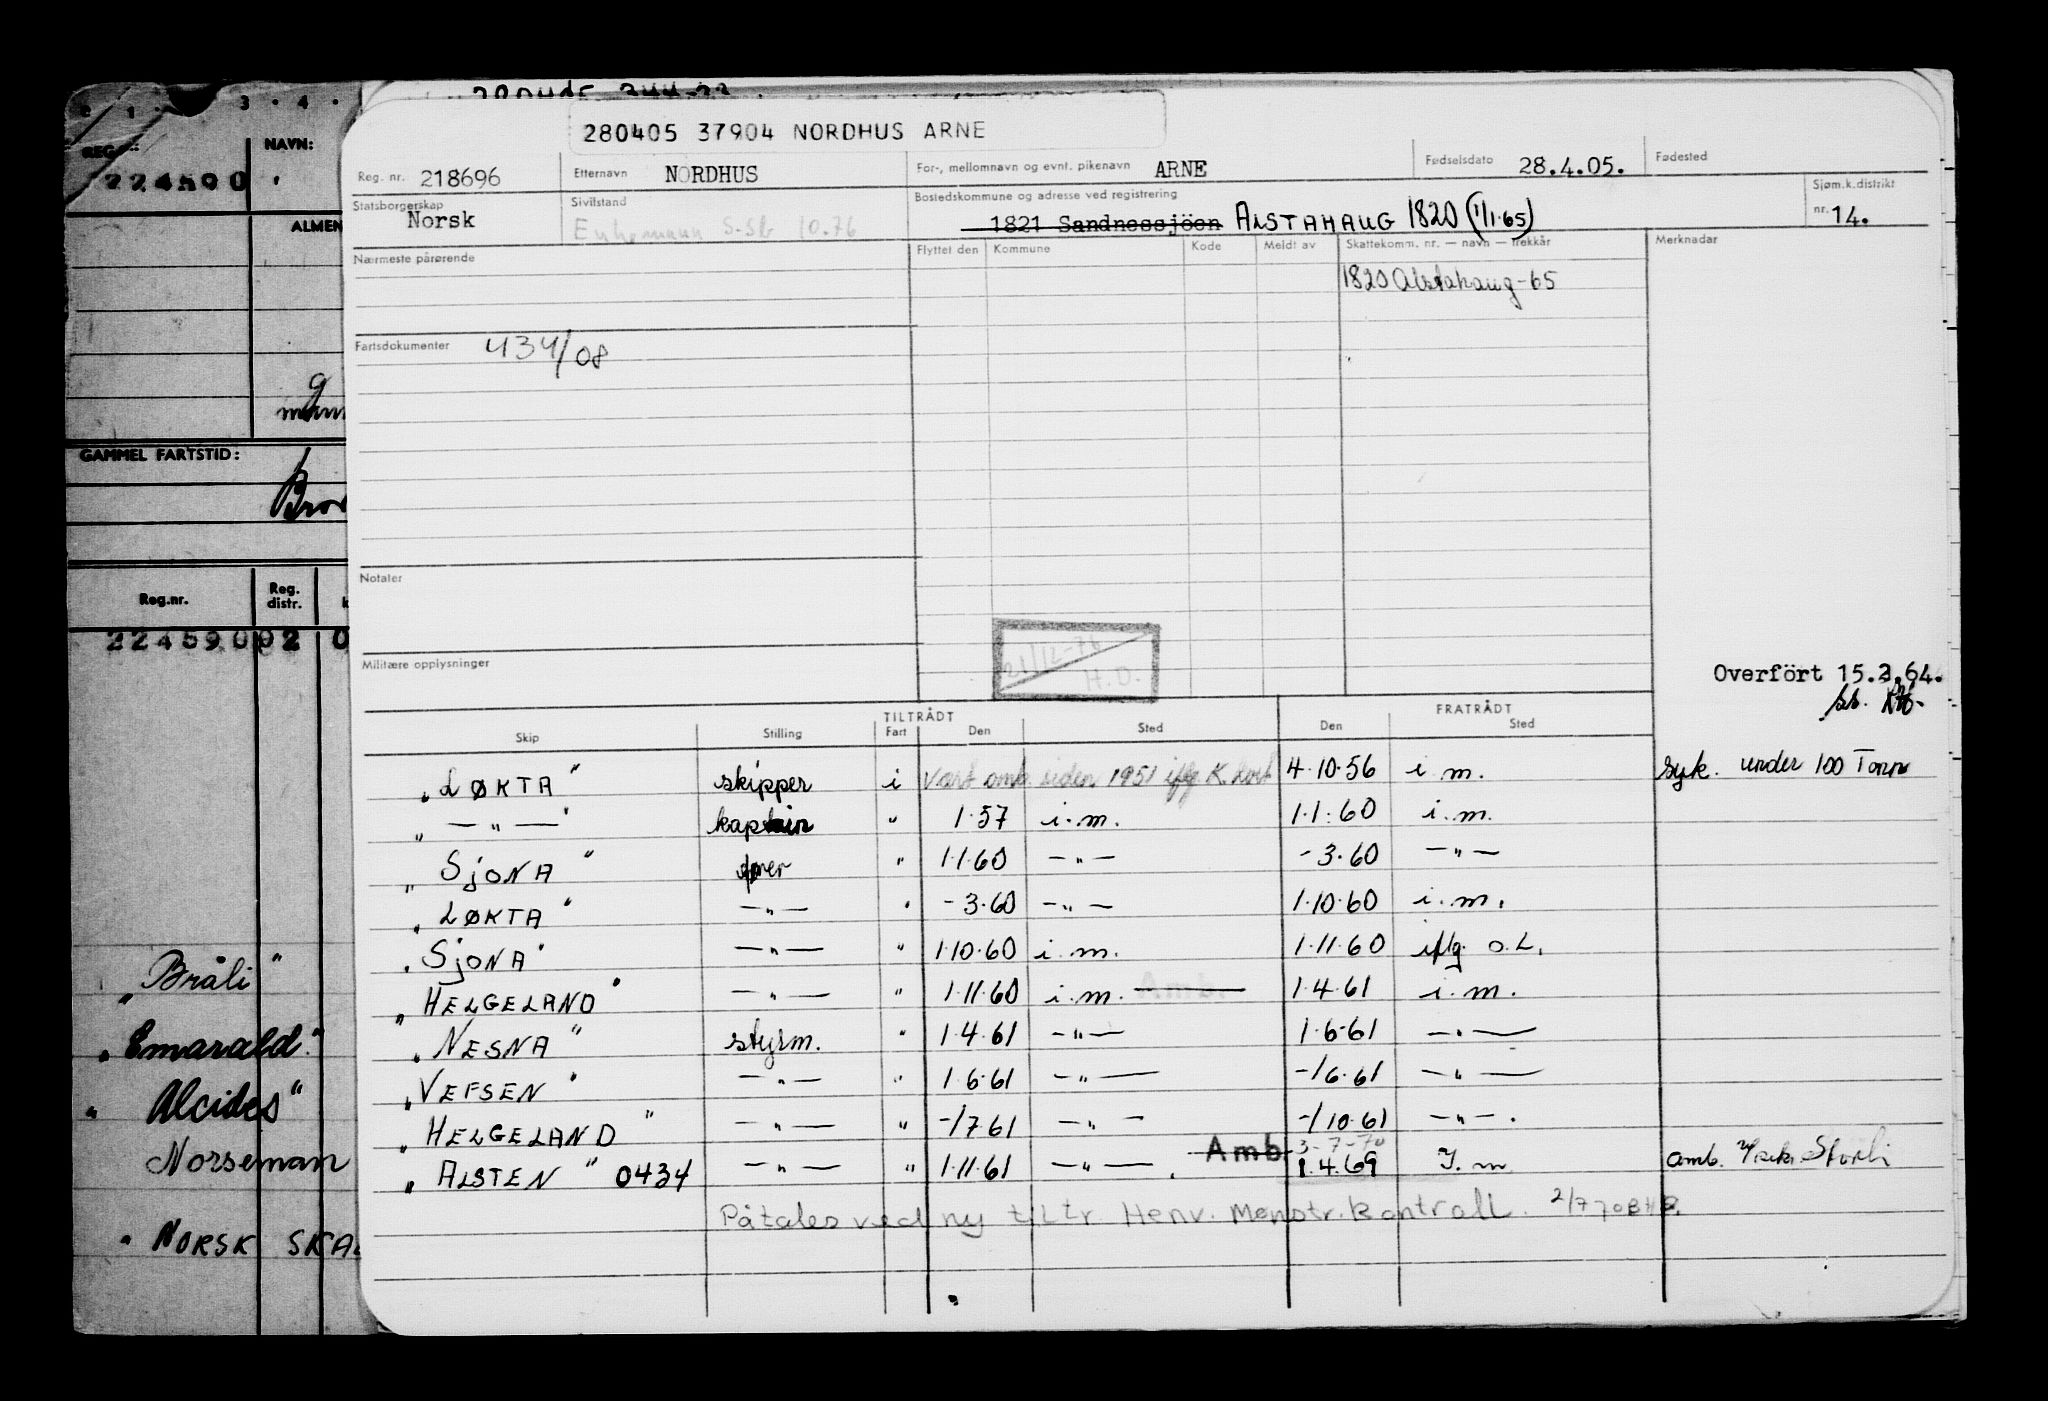 3 . 4 .
REG. NAVN:
224590
ALMEN
GAMMEL FARTSTID:
Reg.nr. Reg. distr.
224590 02 0
"Bråli"
"Emarald"
"Alcides"
Norseman
"NORSK SKAL
280405 37904 NORDHUS ARNE
Reg. nr. 218696 Etternavn NORDHUS For-, mellomnavn og evnt. pikenavn ARNE Fødselsdato 28.4.05. Fødested
Statsborgerskap Norsk Sivilstand Enkemann S-Sk 10.76 Bostedskommune og adresse ved registrering 1821 Sandnessjöen ALSTAHAUG 1820 (1/1.65) Sjøm.k.distrikt nr. 14.
Nærmeste pårørende Flyttet den Kommune Kode Meldt av Skattekomm. nr. — navn — Trekkår Merknader
1820 Alstahaug-65
Fartsdokumenter 434/08
Notater
21/12-76
H.O.
Militære opplysninger
Overfört 15.3.64.
TILTRÅDT FRATRÅDT
Skip Stilling Fart Den Sted Den Sted
"LØKTA" skipper i Vært omb. siden 1951 iflg K. 4.10.56 i m. syk. under 100 Tonn
" — " — " kaptein " 1.57 i.m. 1.1.60 i.m.
"SjONA" fører " 1.1.60 — " — - 3.60 — " —
"LØKTA" — " — " - 3.60 — " — 1.10.60 i.m.
"SjONA" — " — " 1.10.60 i.m. 1.11.60 iflg. O.L.
"HELGELAND" — " — " 1.11.60 i.m. Amb. 1.4.61 i.m.
"NESNA" styrm. " 1.4.61 — " — 1.6.61 — " —
"VEFSEN" — " — " 1.6.61 — " — -/6.61 — " —
"HELGELAND" — " — " -/7.61 — " — -/10.61 — " — .
"ALSTEN" 0434 — " — " 1.11.61 — " — . Amb. 3-7-70 1.4.69 I.m amb.
Påtales ved ny tiltr Henv. Mønstr.kontroll. 2/7 70